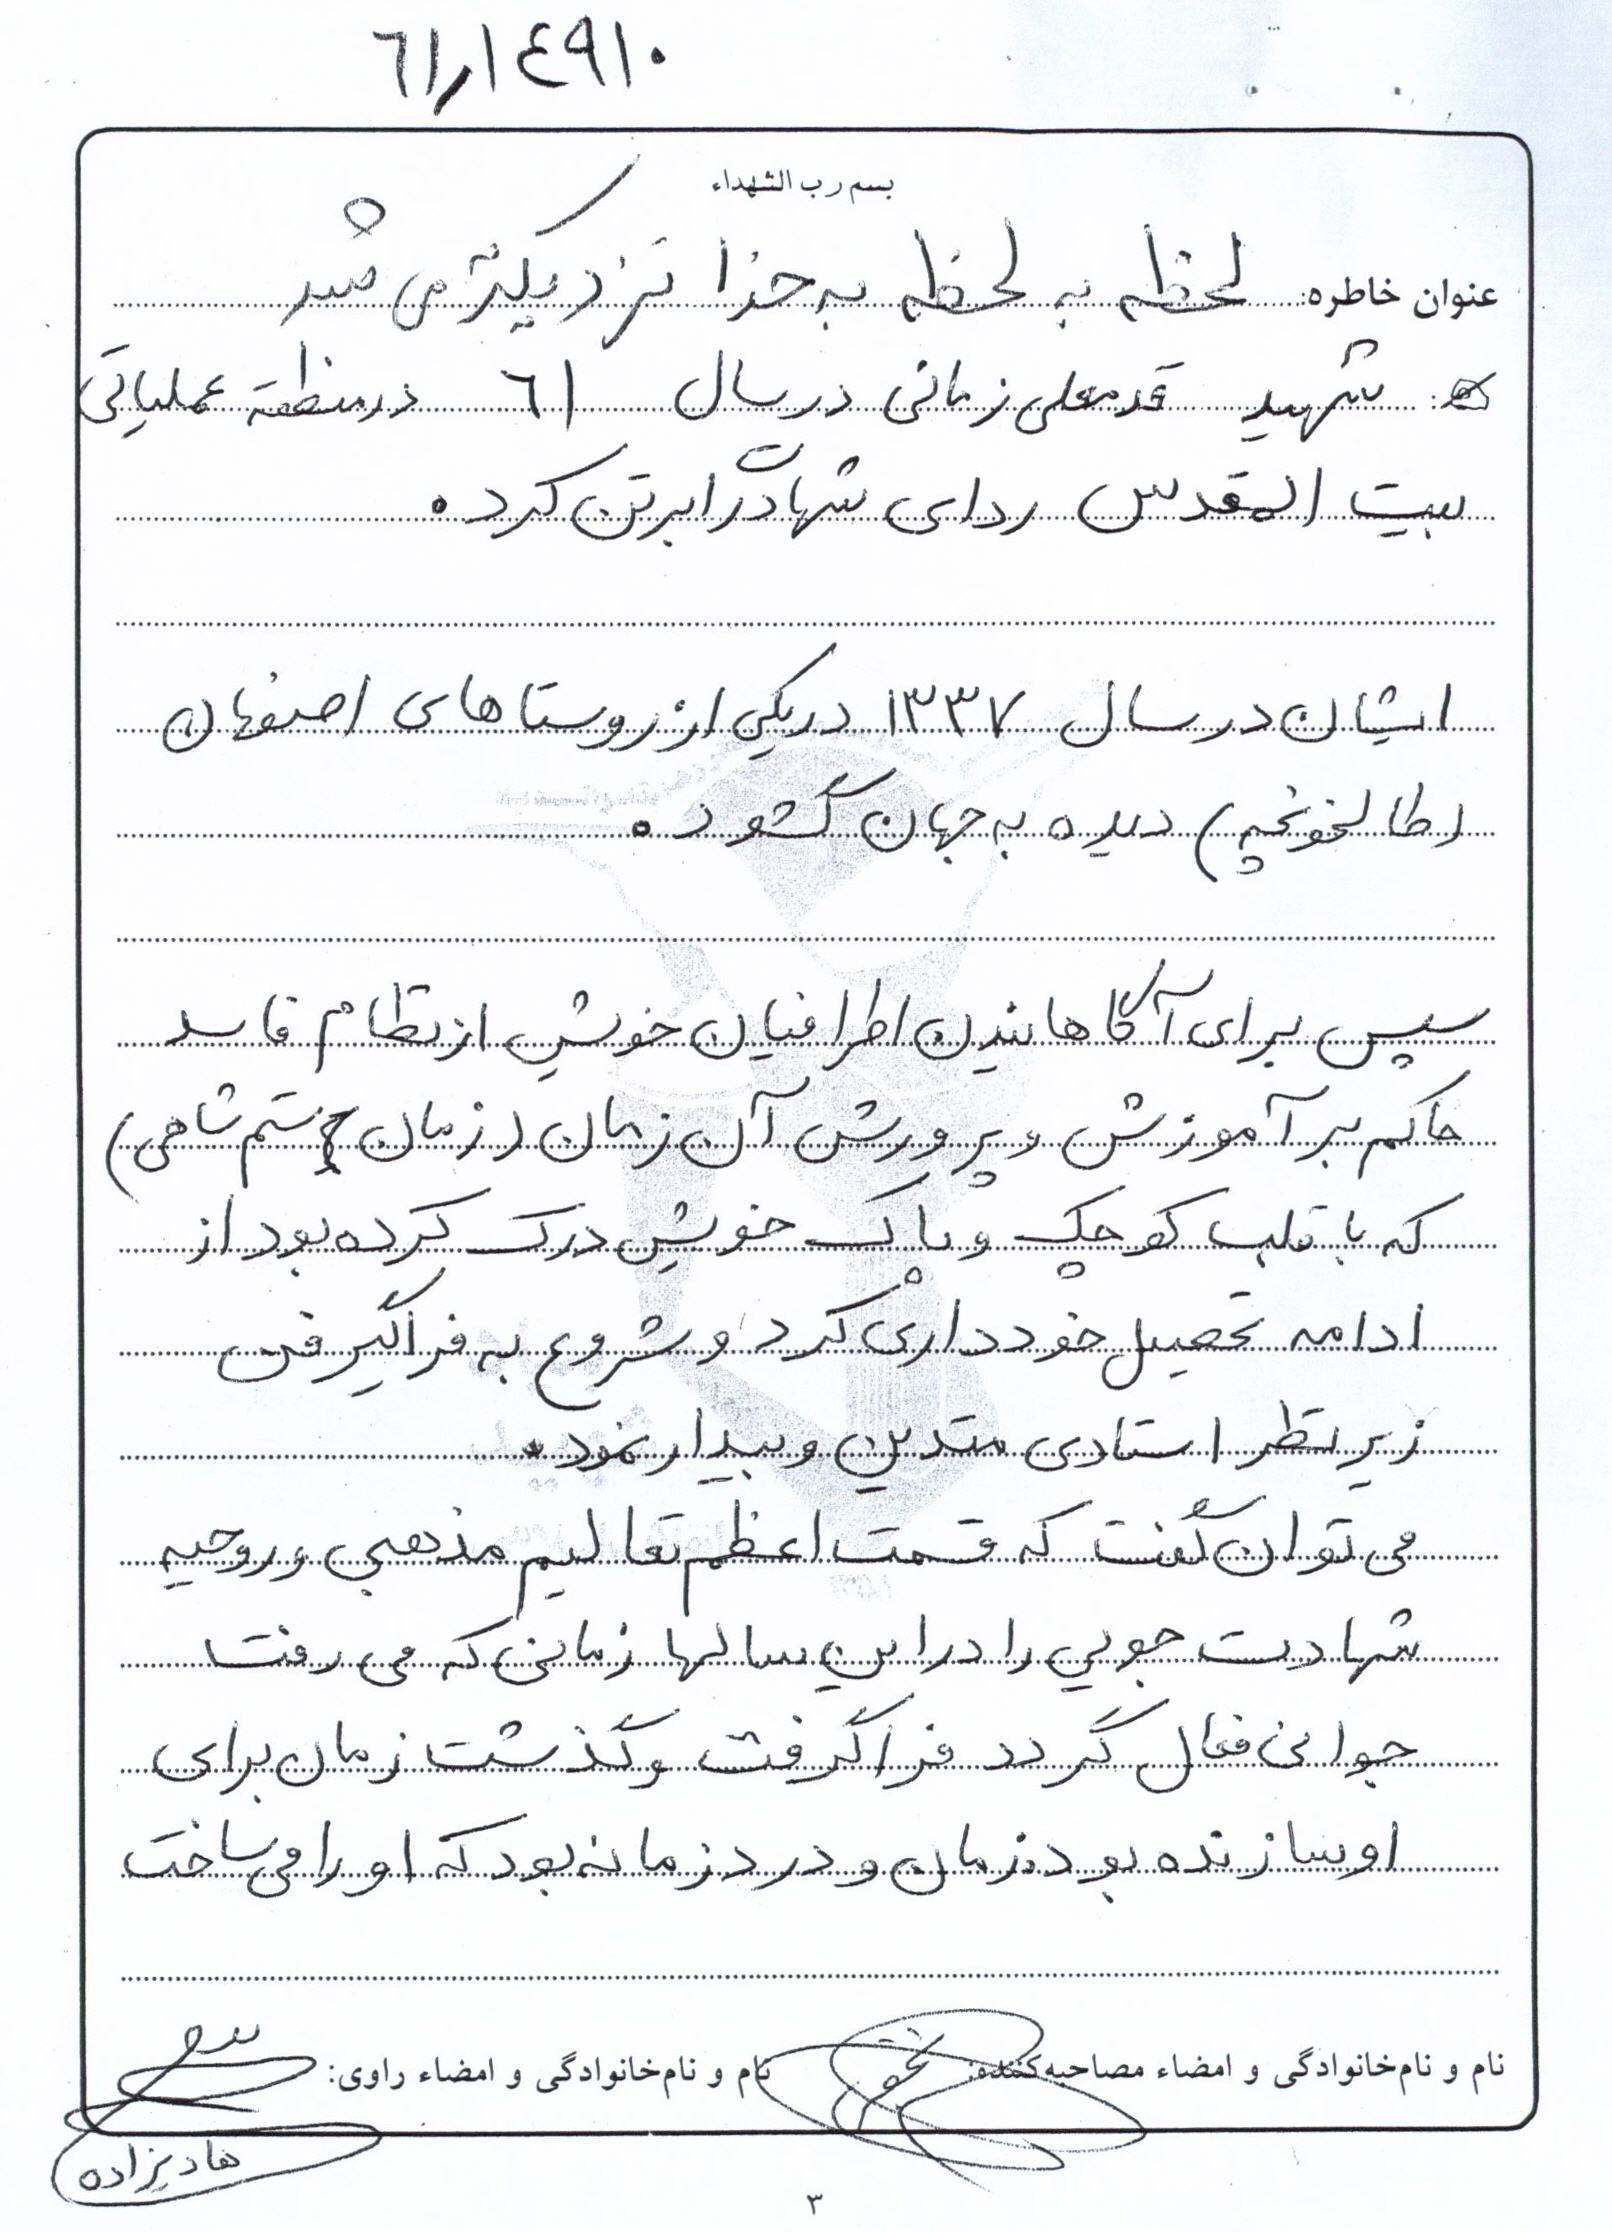 ٦١٫١٤٩١٠
بسم رب الشهداء
عنوان خاطره: لحظه به لحظه به خدا نزدیکتر می شد
شهید قدمعلی زمانی در سال ٦١ در منطقه عملیاتی
بیت المقدس ردای شهادت را بر تن کرد.
ایشان در سال ۱۳۳۷ در یکی از روستاهای اصفهان
(طالخونچه) دیده به جهان گشود.
سپس برای آگاهانیدن اطرافیان خویش از نظام فاسد
حاکم بر آموزش و پرورش آن زمان (زمان ستم شاهی)
که با قلب کوچک و پاک خویش درک کرده بود از
ادامه تحصیل خودداری کرد و شروع به فراگیر فن
زیر نظر استادی متدین و بیدار نمود.
می توان گفت که قسمت اعظم تعالیم مذهبی و روحیه
شهادت جویی را در این سالها زمانی که می رفت
جوانی فعال گردد فرا گرفت و گذشت زمان برای
او سازنده بود. زمان و درد زمانه بود که او را می ساخت
نام و نام‌خانوادگی و امضاء مصاحبه‌کننده: نام و نام‌خانوادگی و امضاء راوی:
هادیزاده
۳